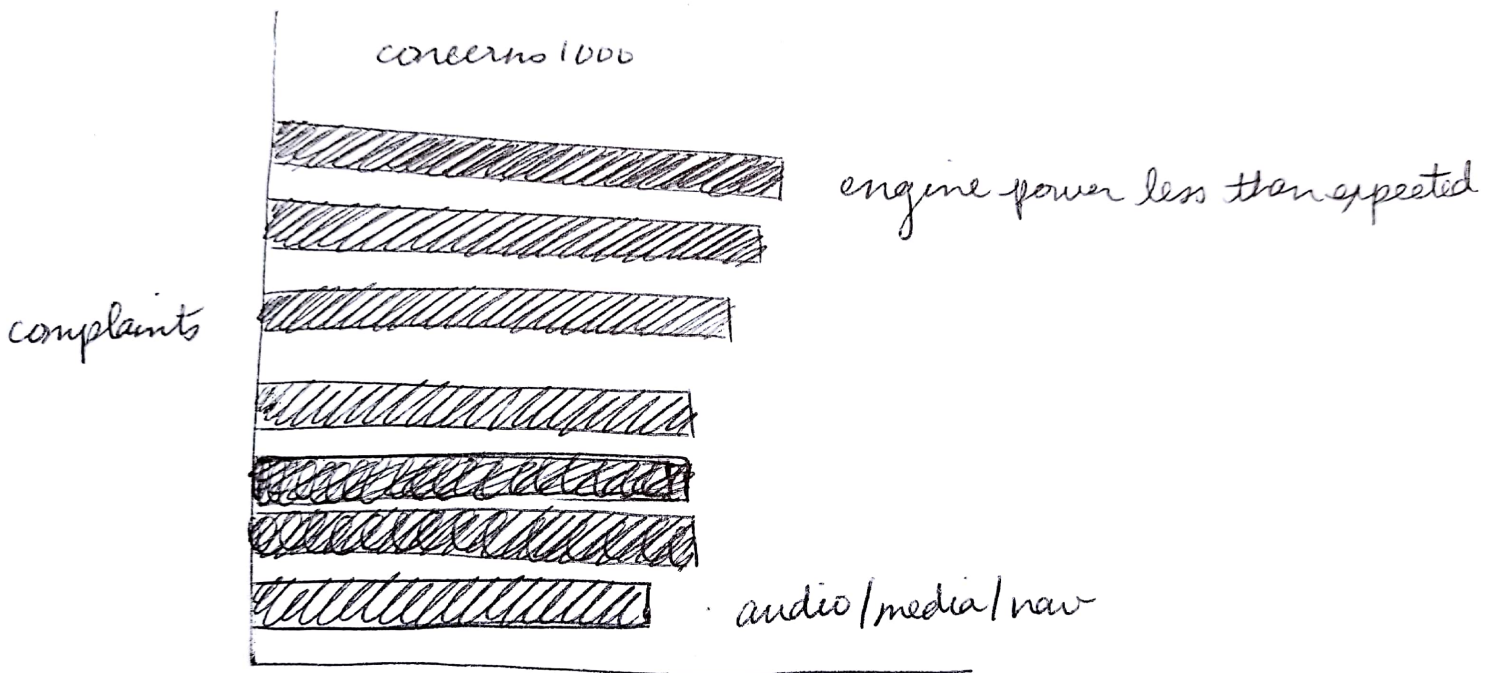 concerns 1000
engine power less than expected
complaints
audio/media/nav